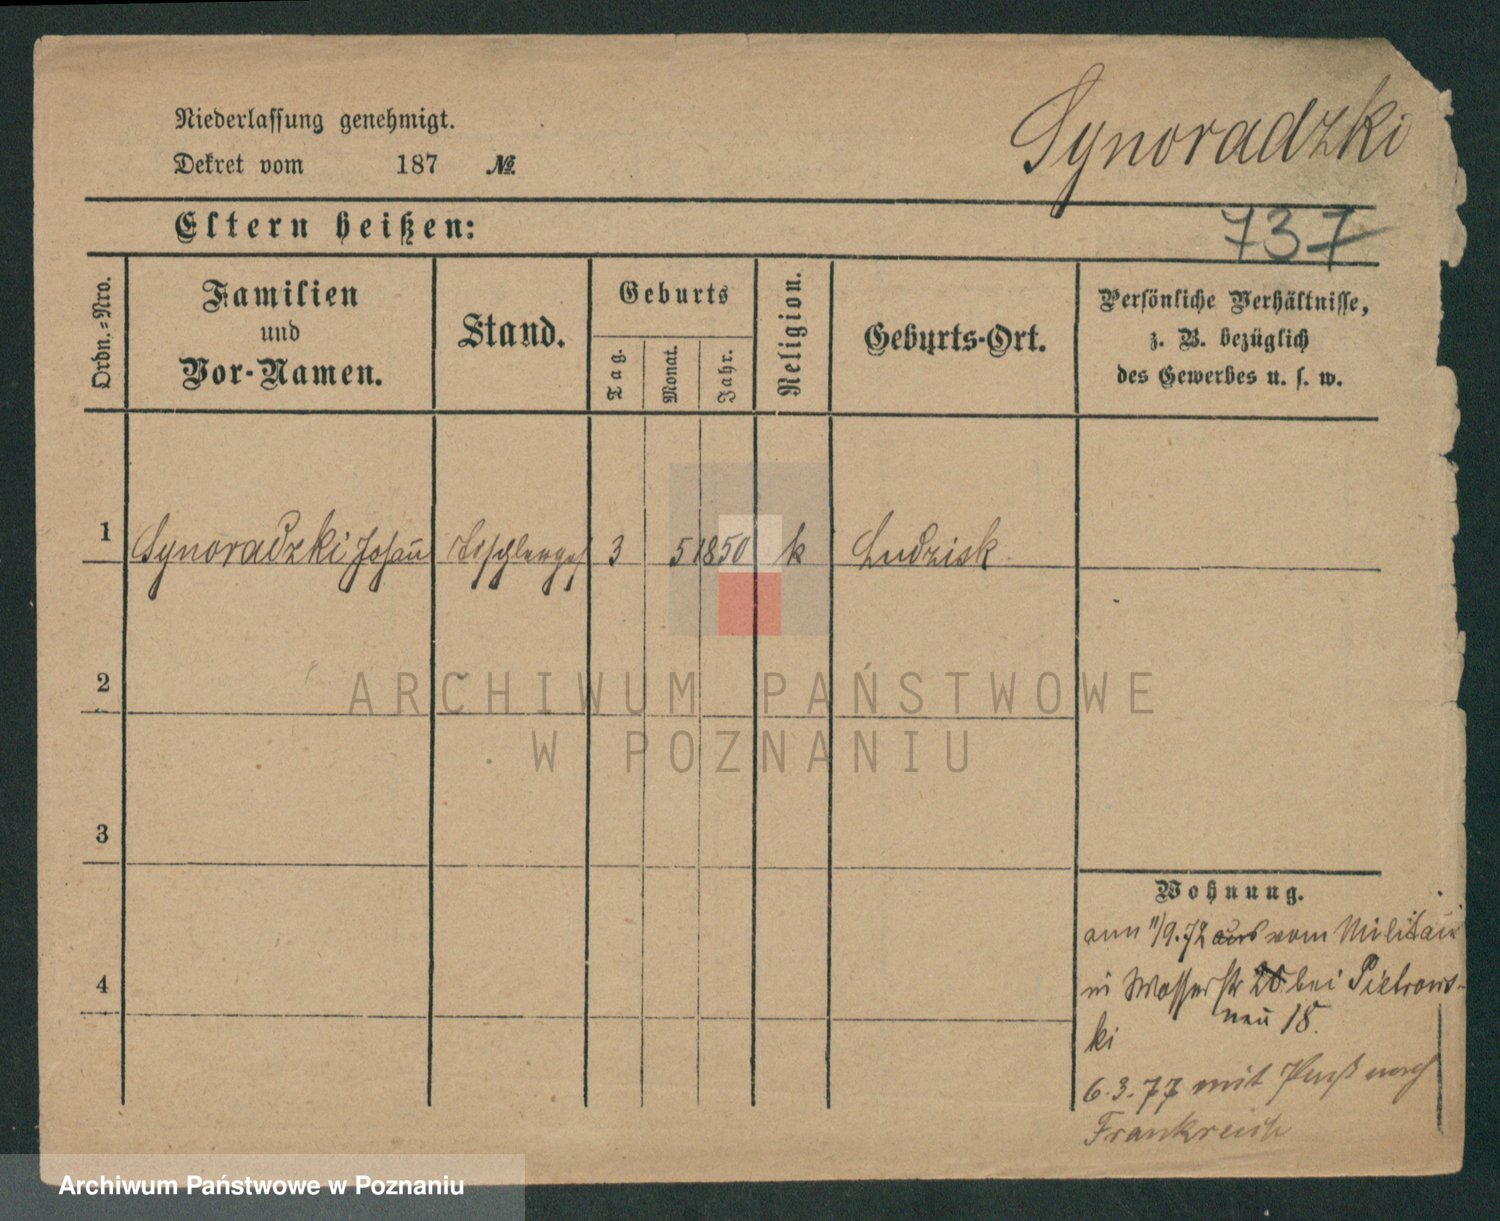 Niederlassung genehmigt.
Dekret vom 187 №
Synoradzki
Eltern heißen:
737
Ordn.=Nro.
Familien
und
Vor-Namen.
Stand.
Geburts
Tag.
Monat.
Jahr.
Religion.
Geburts-Ort.
Persönliche Verhältnisse,
z. B. bezüglich
des Gewerbes u. s. w.
1 Synoradzki Johann Tischlerges 3 5 1850 k Ludzisk
2
ARCHIWUM PAŃSTWOWE
W POZNANIU
3
Wohnung.
11/9.72 aus vom Militair
4
in Wasserstr 20 bei Pietrows-
neu 18.
ki
6.3.77 mit nach
Frankreich
Archiwum Państwowe w Poznaniu